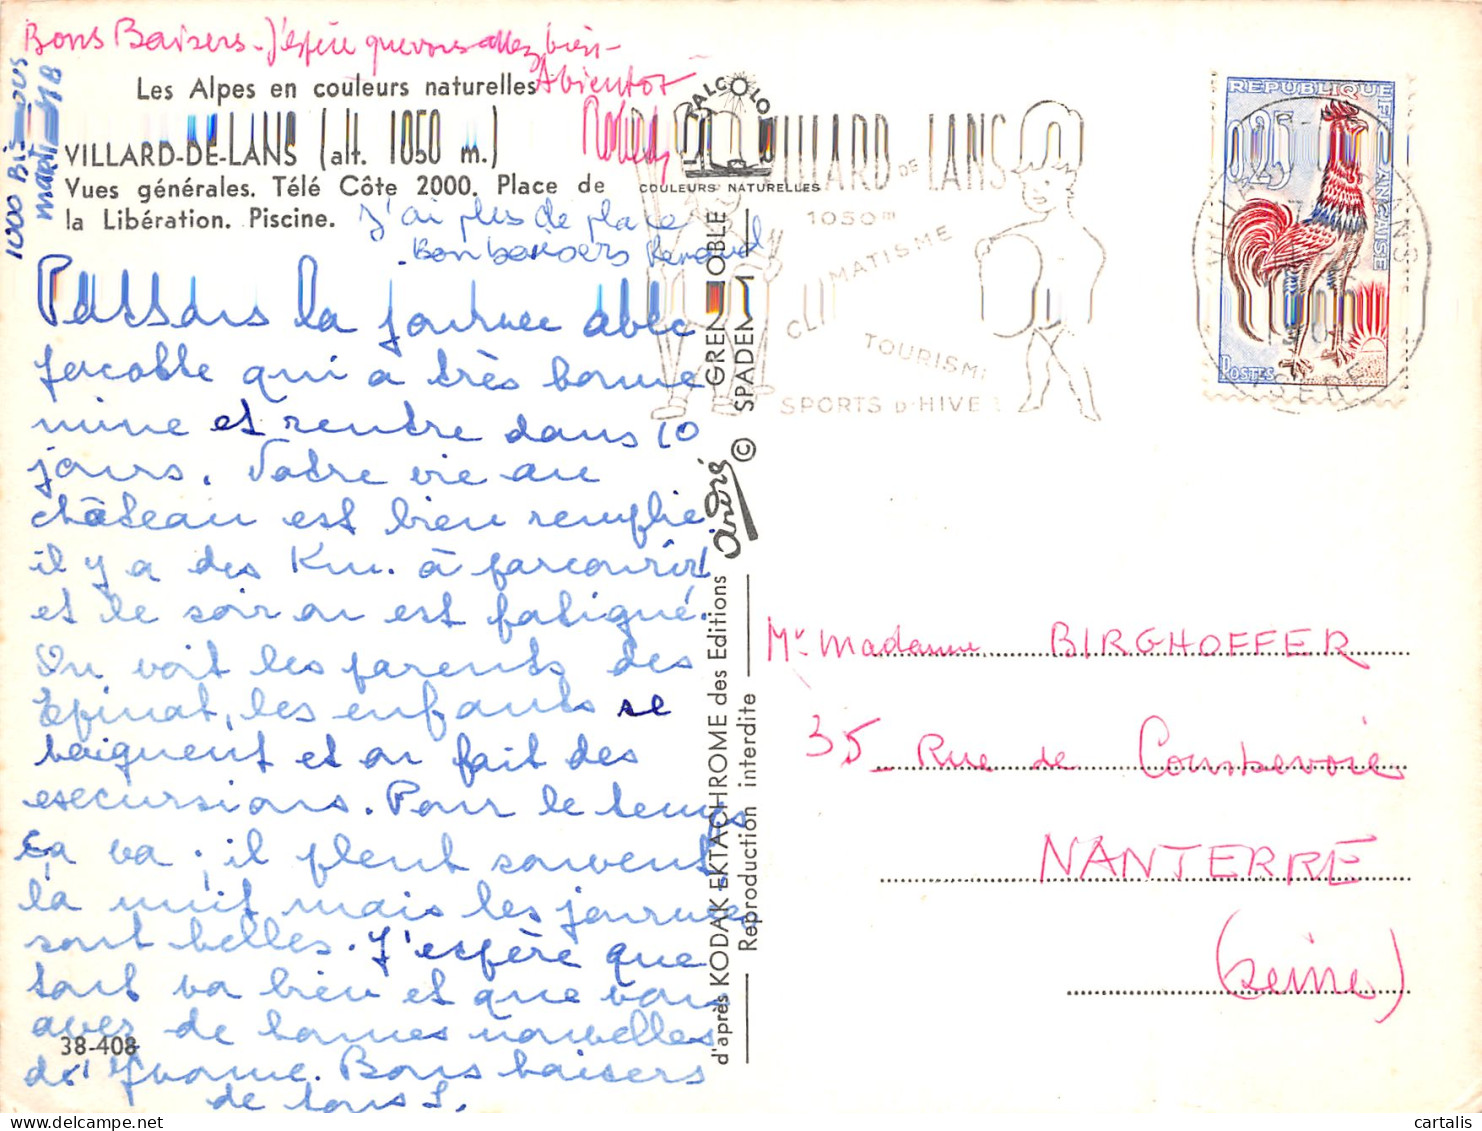 Bons Baisers - J'espère que vous allez bien -
A bientot
1000 Bisous
Les Alpes en couleurs naturelles
VILLARD-DE-LANS (alt. 1050 m.)
Vues générales. Télé Côte 2000. Place de
la Libération. Piscine.
J'ai plus de place
Bon baisers Renaud
Passons la journée avec
qui a très bonne
mine et rentre dans 10
jours. Votre vie au
château est bien remplie
il y a des Km. à parcourir
et le soir on est fatigué.
On voit les parents des
Epinat, les enfants se
baignent et on fait des
excursions. Pour le temps
ça va ; il pleut souvent
la nuit mais les journées
sont belles. J'espère que
tout va bien et que vous
avez de bonnes nouvelles
d'Yvonne. Bons baisers
de tous
38-408
TALCOLOR
COULEURS NATURELLES
GRENOBLE
SPADEM
©
André
d'après KODAK EKTACHROME des Editions
Reproduction interdite
VILLARD DE LANS
1050 m
CLIMATISME
TOURISME
SPORTS D'HIVER
REPUBLIQUE FRANÇAISE
0,25
POSTES
VILLARD DE LANS
ISERE
Mr Madame BIRGHOFFER
35 - Rue de Courbevoie
NANTERRE
(Seine)
cartalis.com